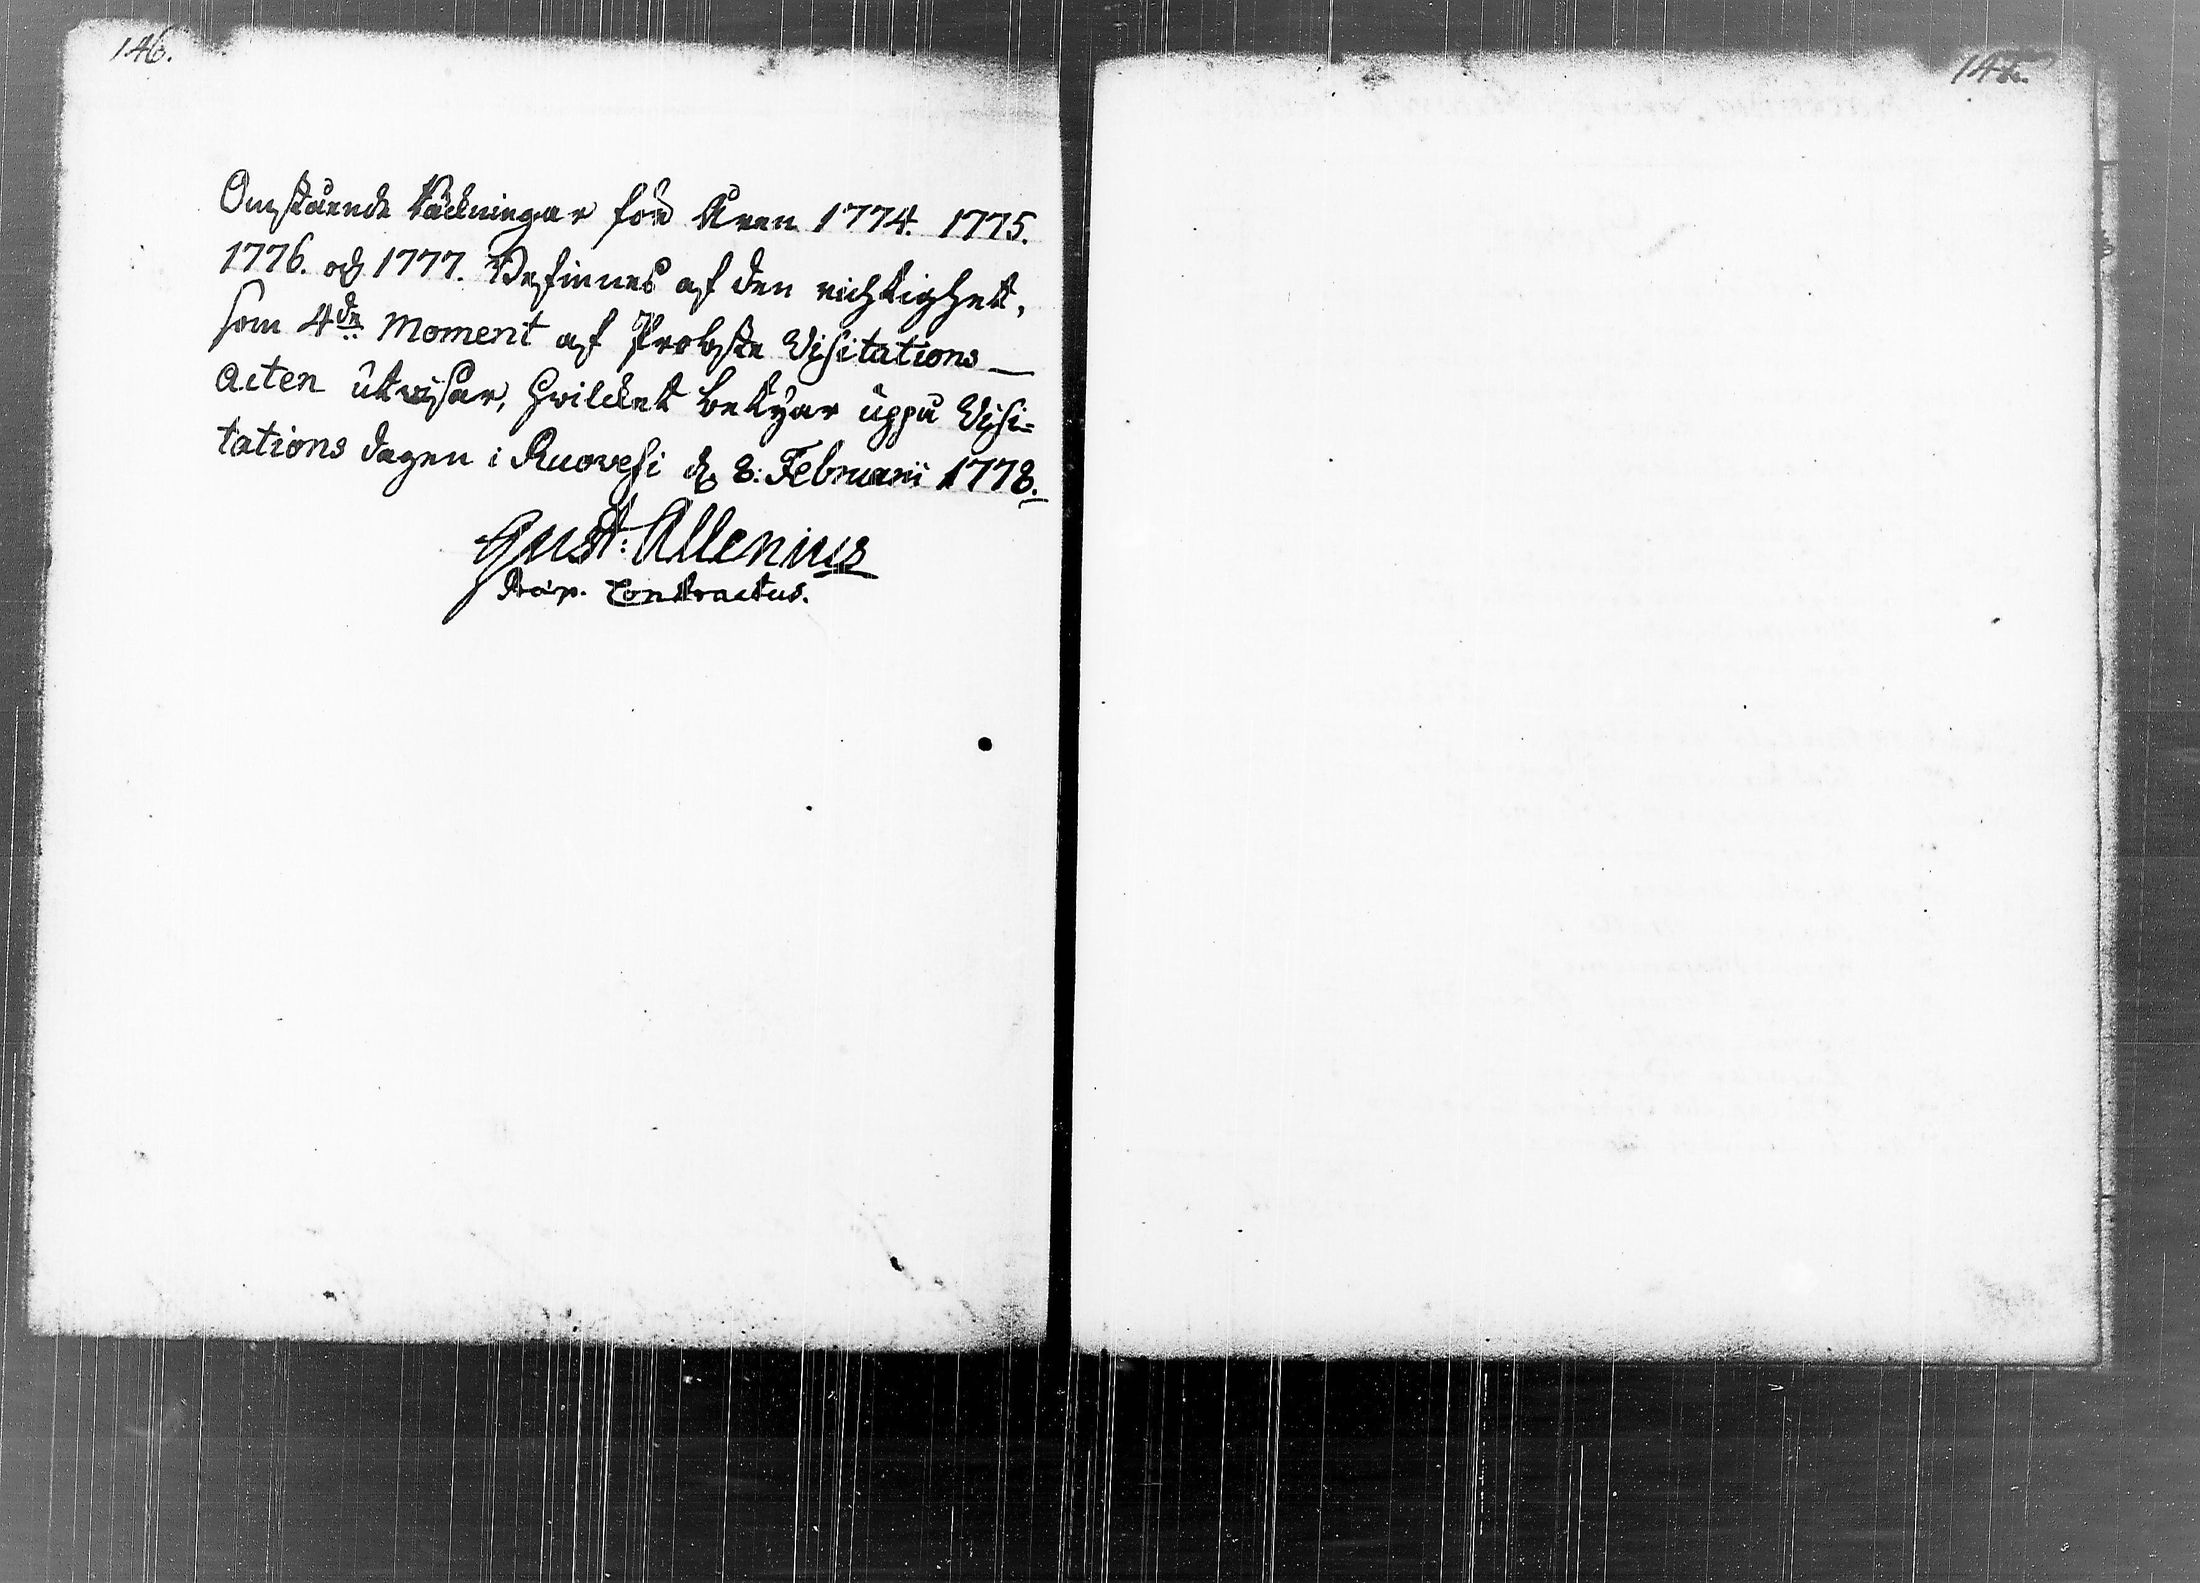 146.
Omstående Räckningar för Åren 1774. 1775.
1776. och 1777. Befinnes af den richtighet,
som 4de Moment af Probste Visitations
Acten utvisar, hvilcket betygar uppå Visi=
tations dagen i Ruovesi d. 8. Februarii 1778.
Gust: Allenius
Præp. Contractus.